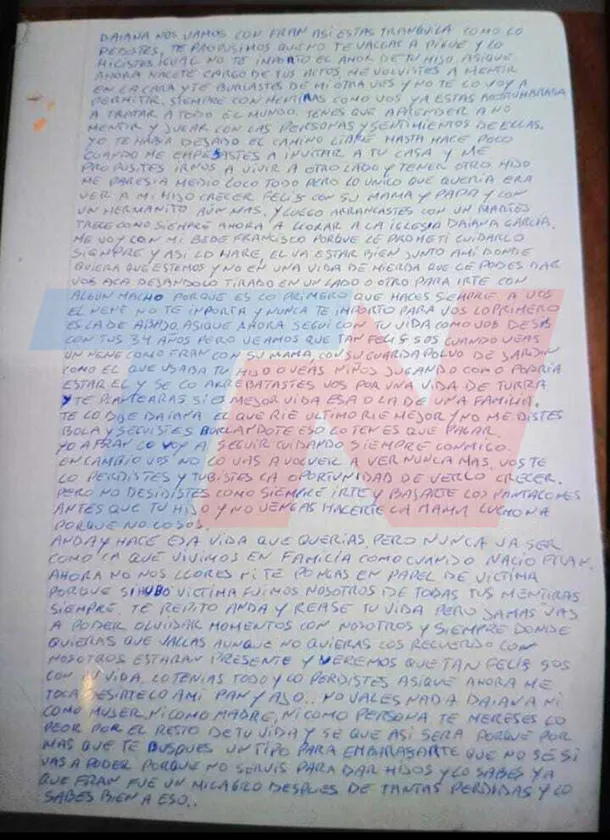 DAIANA NOS VAMOS CON FRAN ASI ESTAS TRANQUILA COMO LO
PEDISTES, TE PROPUSIMOS QUE NO TE VALLAS A PIQUE Y LO
HICISTES IGUAL NO TE INPORTO EL AMOR DE TU HIJO. ASIQUE
AHORA HACETE CARGO DE TUS ACTOS, ME VOLVISTES A MENTIR
EN LA CARA Y TE BURLASTES DE MI OTRA VES Y NO TE LO VOY A
PERMITIR, SIEMPRE CON MENTIRAS COMO VOS YA ESTAS ACOSTUMBRADA
A TRATAR A TODO EL MUNDO. TENES QUE APRENDER A NO
MENTIR Y JUGAR CON LAS PERSONAS Y SENTIMIENTOS DE ELLAS.
YO TE HABIA DEJADO EL CAMINO LIBRE HASTA HACE POCO
CUANDO ME EMPESASTES A INVITAR A TU CASA Y ME
PROPUSITES IRNOS A VIVIR A OTRO LADO Y TENER OTRO HIJO
ME PARESIA MEDIO LOCO TODO PERO LO UNICO QUE QUERIA ERA
VER A MI HIJO CRECER FELIS CON SU MAMA Y PAPA Y CON
UN HERMANITO AÚN MAS, Y LUEGO ARRANCASTES CON UN MARTES
COMO SIEMPRE AHORA A LLORAR A LA IGLESIA DAIANA GARCIA.
ME VOY CON MI BEBE FRANCISCO PORQUE LE PROMETI CUIDARLO
SIEMPRE Y ASI LO HARE. EL VA ESTAR BIEN JUNTO AMI DONDE
QUIERA QUE ESTEMOS Y NO EN UNA VIDA DE MIERDA QUE LE PODES DAR
VOS ACA DEJANDOLO TIRADO EN UN LADO U OTRO PARA IRTE CON
ALGUN MACHO PORQUE ES LO PRIMERO QUE HACES SIEMPRE A VOS
EL NENE NO TE INPORTA Y NUNCA TE INPORTO PARA VOS LO PRIMERO
ES LA DE ABAJO. ASIQUE AHORA SEGUI CON TU VIDA COMO VOS DESIS
CON TUS 34 AÑOS PERO VEAMOS QUE TAN FELIS SOS CUANDO VEAS
UN NENE COMO FRAN CON SU MAMA, CON SU GUARDAPOLVO DE JARDIN
COMO EL QUE USABA TU HIJO O VEAS NIÑOS JUGANDO COMO PODRIA
ESTAR EL Y SE LO ARREBATASTES VOS POR UNA VIDA DE TURRA
Y TE PLANTEARAS SI ES MEJOR VIDA ESA O LA DE UNA FAMILIA.
TE LO DIJE DAIANA EL QUE RIE ULTIMO RIE MEJOR Y NO ME DISTES
BOLA Y SEGUISTES BURLANDOTE ESO LO TENES QUE PAGAR.
YO A FRAN LO VOY A SEGUIR CUIDANDO SIEMPRE CONMIGO.
EN CAMBIO VOS NO LO VAS A VOLVER A VER NUNCA MAS. VOS TE
LO PERDISTES Y TUBISTES LA OPORTUNIDAD DE VERLO CRECER.
PERO NO DESIDISTES COMO SIEMPRE IRTE Y BAJARTE LOS PANTALONES
ANTES QUE TU HIJO Y NO VENGAS HACERTE LA MAMA LUCHONA
PORQUE NO LO SOS.
ANDA Y HACE ESA VIDA QUE QUERIAS, PERO NUNCA VA SER
COMO LA QUE VIVIMOS EN FAMILIA COMO CUANDO NACIO FRAN.
AHORA NO NOS LLORES NI TE PONGAS EN PAPEL DE VICTIMA
PORQUE SI HUBO VICTIMA FUIMOS NOSOTROS DE TODAS TUS MENTIRAS
SIEMPRE. TE REPITO ANDA Y REASE TU VIDA PERO JAMAS VAS
A PODER OLVIDAR MOMENTOS CON NOSOTROS Y SIEMPRE DONDE
QUIERAS QUE VALLAS AUNQUE NO QUIERAS LOS RECUERDO CON
NOSOTROS ESTARAN PRESENTE Y VEREMOS QUE TAN FELIS SOS
CON TU VIDA. LO TENIAS TODO Y LO PERDISTES ASIQUE AHORA ME
TOCA DESIRTELO AMI PAN Y AJO.. NO VALES NADA DAIANA NI
COMO MUJER, NI COMO MADRE, NI COMO PERSONA TE MERESES LO
PEOR POR EL RESTO DE TU VIDA Y SE QUE ASI SERA PORQUE POR
MAS QUE TE BUSQUES UN TIPO PARA EMBARASARTE QUE NO SE SI
VAS A PODER PORQUE NO SERVIS PARA DAR HIJOS Y LO SABES YA
QUE FRAN FUE UN MILAGRO DESPUES DE TANTAS PERDIDAS Y LO
SABES BIEN A ESO..
TN